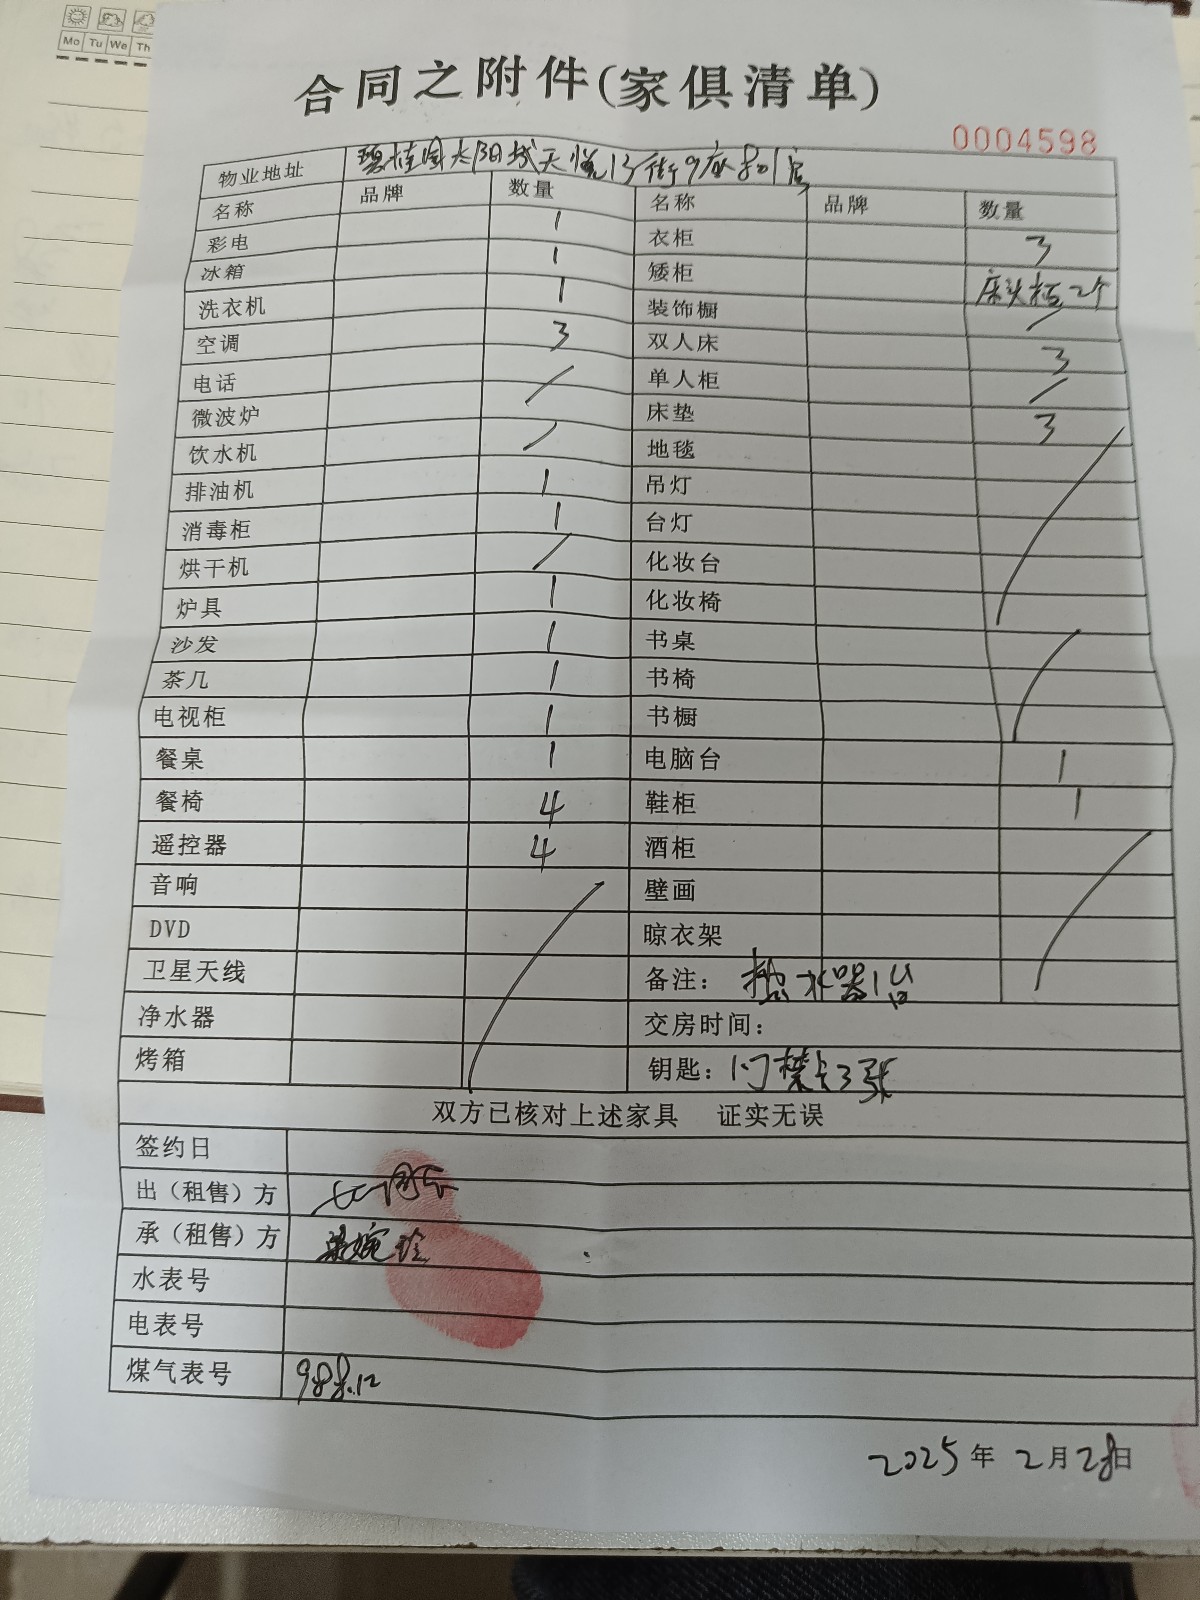 Mo Tu We Th
合同之附件(家俱清单)
0004598
物业地址 碧桂园太阳城天悦13街9座801房
名称 品牌 数量 名称 品牌 数量
彩电 1 衣柜 3
冰箱 1 矮柜 床头柜2个
洗衣机 1 装饰橱 /
空调 3 双人床 3
电话 / 单人柜 /
微波炉 床垫 3
饮水机 / 地毯
排油机 1 吊灯
消毒柜 1 台灯
烘干机 / 化妆台
炉具 1 化妆椅
沙发 1 书桌
茶几 1 书椅
电视柜 1 书橱
餐桌 1 电脑台 1
餐椅 4 鞋柜 1
遥控器 4 酒柜
音响 壁画
DVD 晾衣架
卫星天线 备注: 热水器1台
净水器 交房时间:
烤箱 钥匙: 门禁卡3张
双方已核对上述家具 证实无误
签约日
出（租售）方
承（租售）方 梁婉玲
水表号
电表号
煤气表号 988.12
2025年2月28日